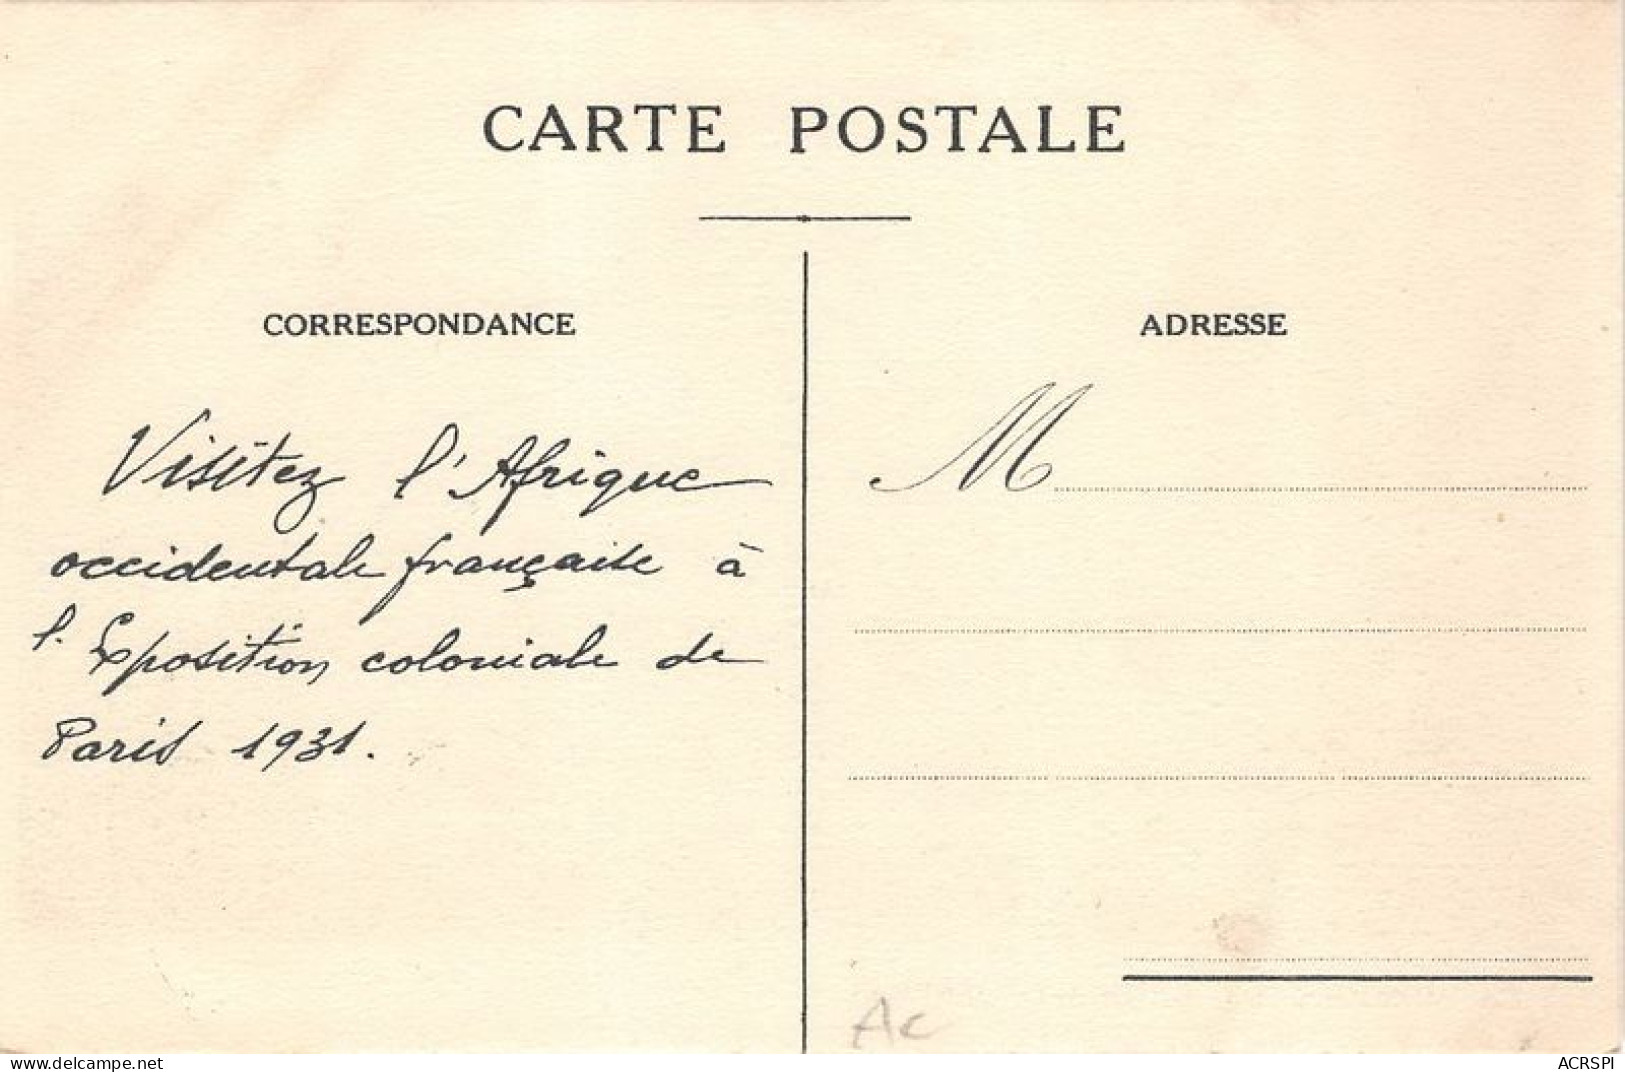 CARTE POSTALE
CORRESPONDANCE
ADRESSE
Visitez l'Afrique
occidentale française à
l'Exposition coloniale de
Paris 1931.
M
Ac
www.delcampe.net
ACRSPI